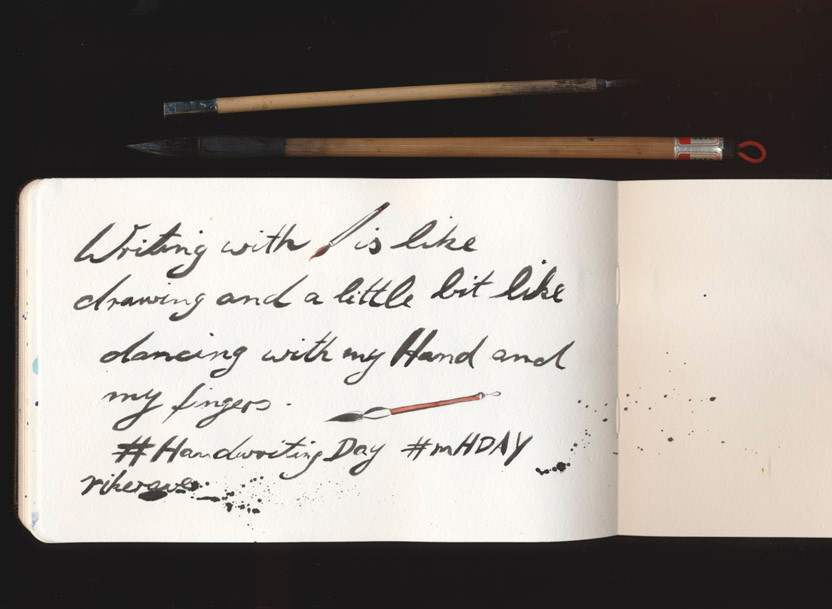 Writing with is like
drawing and a little bit like
dancing with my Hand and
my fingers.
#Handwriting Day #mHDAY